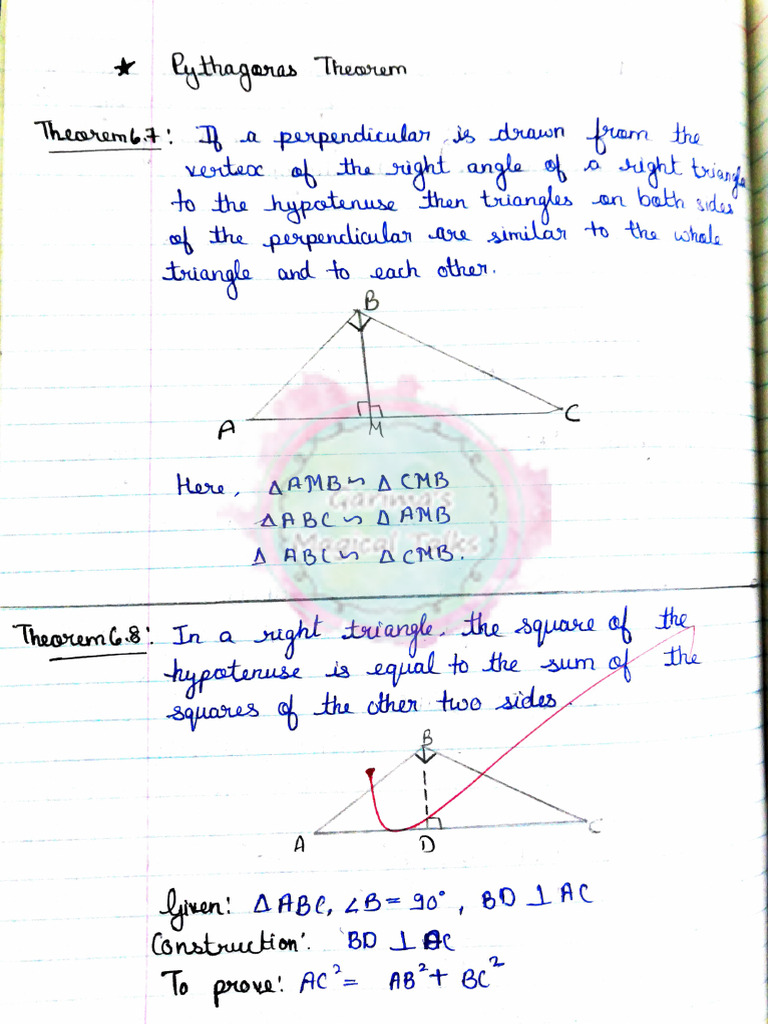 ★ Pythagoras Theorem
Theorem 6.7: If a perpendicular is drawn from the
vertex of the right angle of a right triangle
to the hypotenuse then triangles on both sides
of the perpendicular are similar to the whole
triangle and to each other.
B
A
M
C
Here, △AMB ∽ △CMB
△ABC ∽ △AMB
△ ABC ∽ △CMB.
Garima's
Magical Talks
Theorem 6.8: In a right triangle, the square of the
hypotenuse is equal to the sum of the
squares of the other two sides.
B
A
D
C
Given: △ABC, ∠B = 90°, BD ⊥ AC
Construction: BD ⊥ AC
To prove: AC² = AB² + BC²